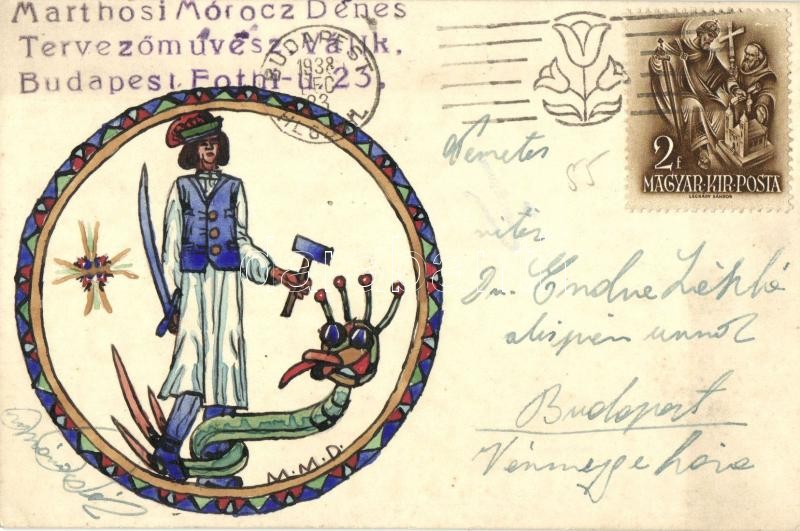 Marthosi Mórocz Dénes
Tervezőművész, Vállk.
Budapest Fothi-u. 23.
BUDAPEST
1938
DEC
23
2f
MAGYAR·KIR·POSTA
LÉGRÁDY SÁNDOR
55
Nemetes
vitéz
Dr. Endre László
alispán urnak
Budapest
Vármegyeháza
M.M.D.